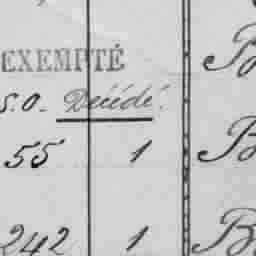 EXEMPTÉ
S.O. Décédé.
55 1
242 1